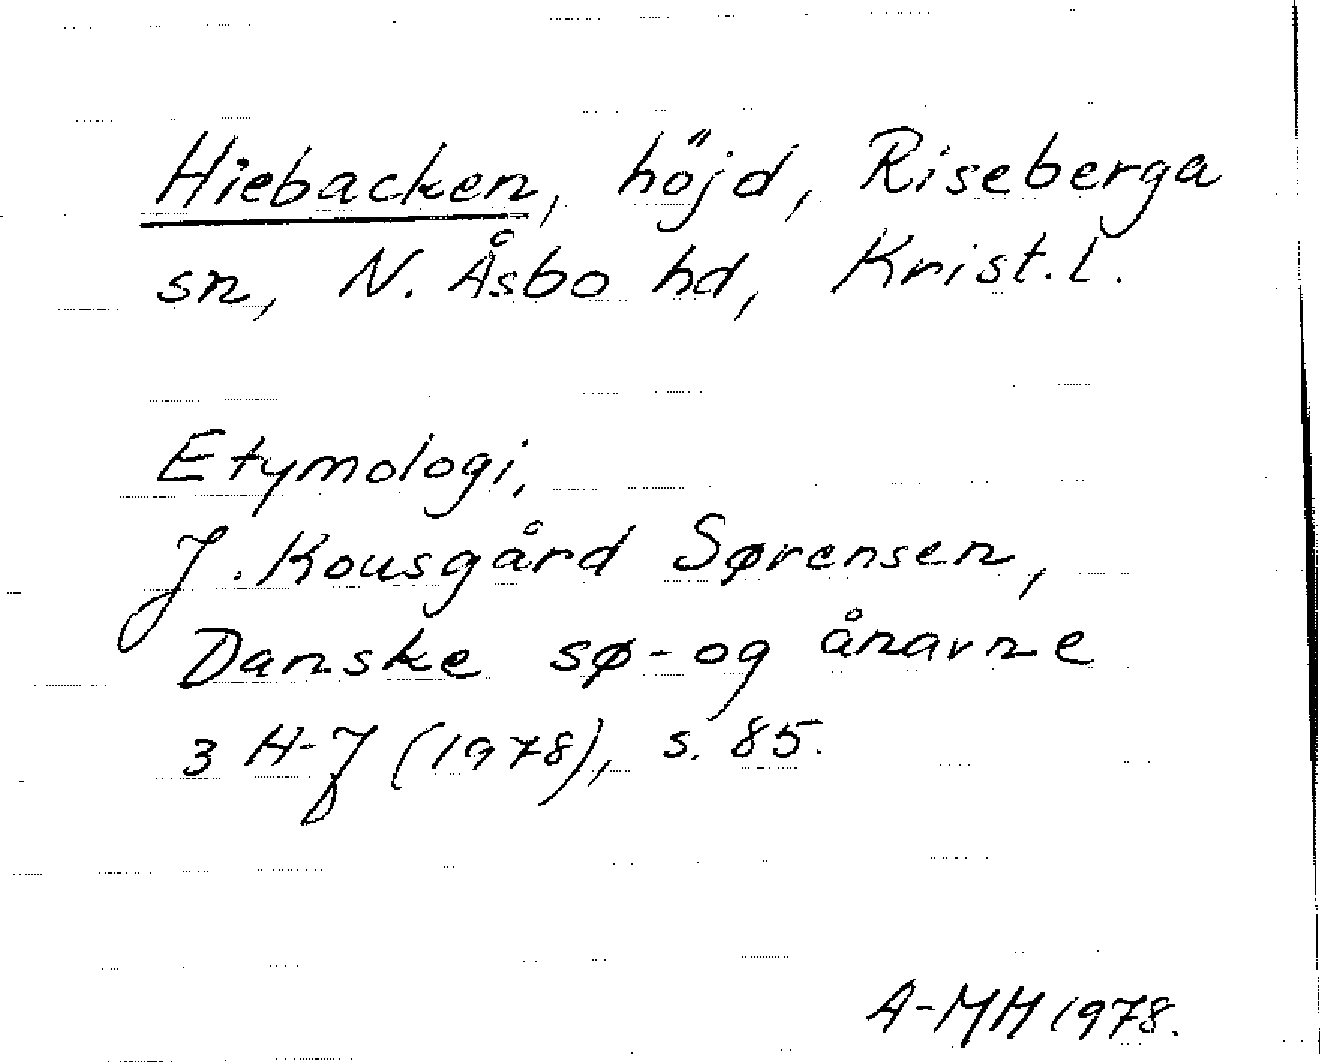 Hiebacken, höjd, Riseberga
sn, N. Åsbo hd, Krist. l.
Etymologi,
J. Kousgård Sørensen,
Danske sø- og ånavne
3 H-J (1978), s. 85.
A-MH 1978.